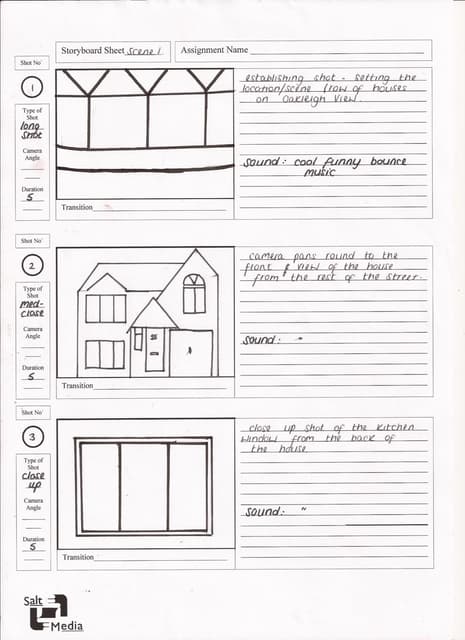 Storyboard Sheet Scene 1
Assignment Name
Shot No
1
Type of
Shot
long
shot
Camera
Angle
Duration
5
Transition
establishing shot - setting the
location/scene (row of houses
on Oakleigh View).
Sound: cool funny bounce
music
Shot No
2
Type of
Shot
med-
close
Camera
Angle
Duration
5
Transition
camera pans round to the
front & view of the house
from the rest of the street.
Sound: "
Shot No
3
Type of
Shot
close
up
Camera
Angle
Duration
5
Transition
close up shot of the kitchen
window from the back of
the house
Sound: "
Salt
Media